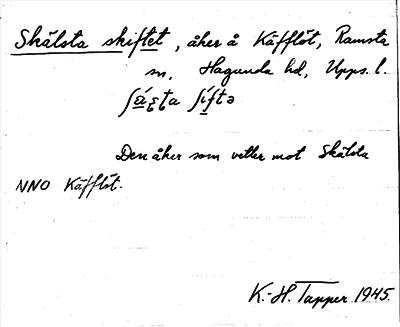 Skälsta skiftet, åker å Käfflöt, Ramsta
sn, Hagunda hd, Upps. l.
Den åker som vetter mot Skälsta
NNO Käfflöt.
K.-H. Tapper 1945.